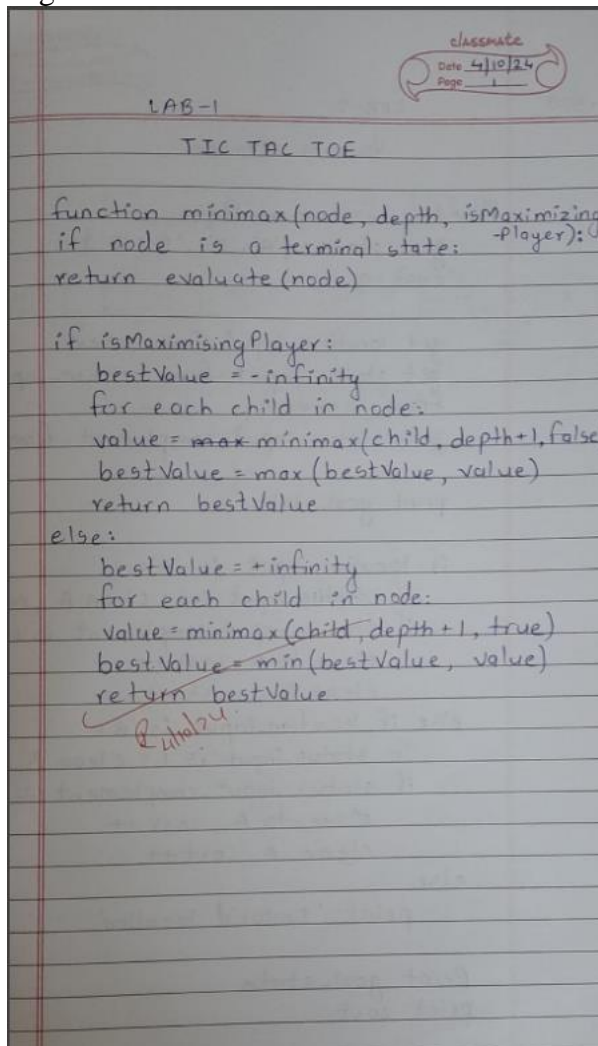 classmate
Date 4/10/24
Page 1
LAB-1
TIC TAC TOE
function minimax(node, depth, isMaximizing
-Player):
if node is a terminal state:
return evaluate(node)
if isMaximisingPlayer:
bestValue = -infinity
for each child in node:
value = max minimax(child, depth+1, false
bestValue = max (bestValue, value)
return bestValue
else:
bestValue = +infinity
for each child in node:
value = minimax(child, depth+1, true)
bestValue = min(bestValue, value)
return bestValue
4/10/24